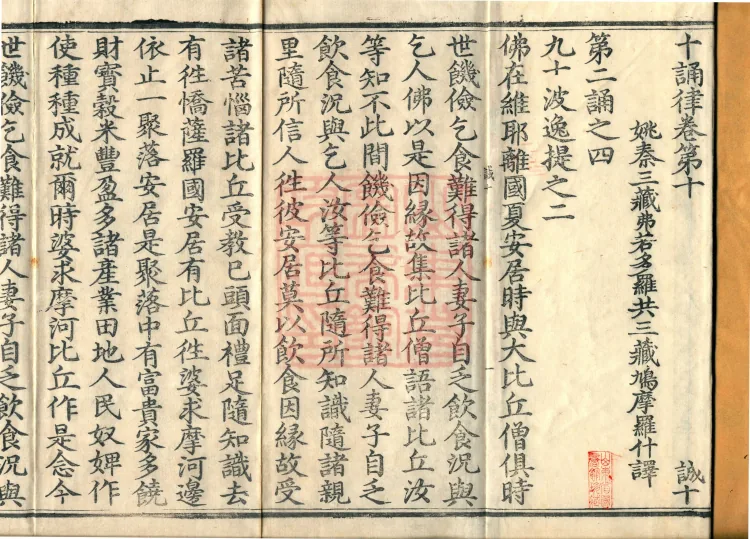 十誦律卷第十 誠十
姚秦三藏弗若多羅共三藏鳩摩羅什譯
第二誦之四
九十波逸提之二
佛在維耶離國夏安居時與大比丘僧俱時
世饑儉乞食難得諸人妻子自乏飲食況與
乞人佛以是因緣故集比丘僧語諸比丘汝
等知不此間饑儉乞食難得諸人妻子自乏
飲食況與乞人汝等比丘隨所知識隨諸親
里隨所信人往彼安居莫以飲食因緣故受
諸苦惱諸比丘受教已頭面禮足隨知識去
有往憍薩羅國安居有比丘往婆求摩河邊
依止一聚落安居是聚落中有富貴家多饒
財寶穀米豐盈多諸產業田地人民奴婢作
使種種成就爾時婆求摩河比丘作是念今
世饑儉乞食難得諸人妻子自乏飲食況與
誠十